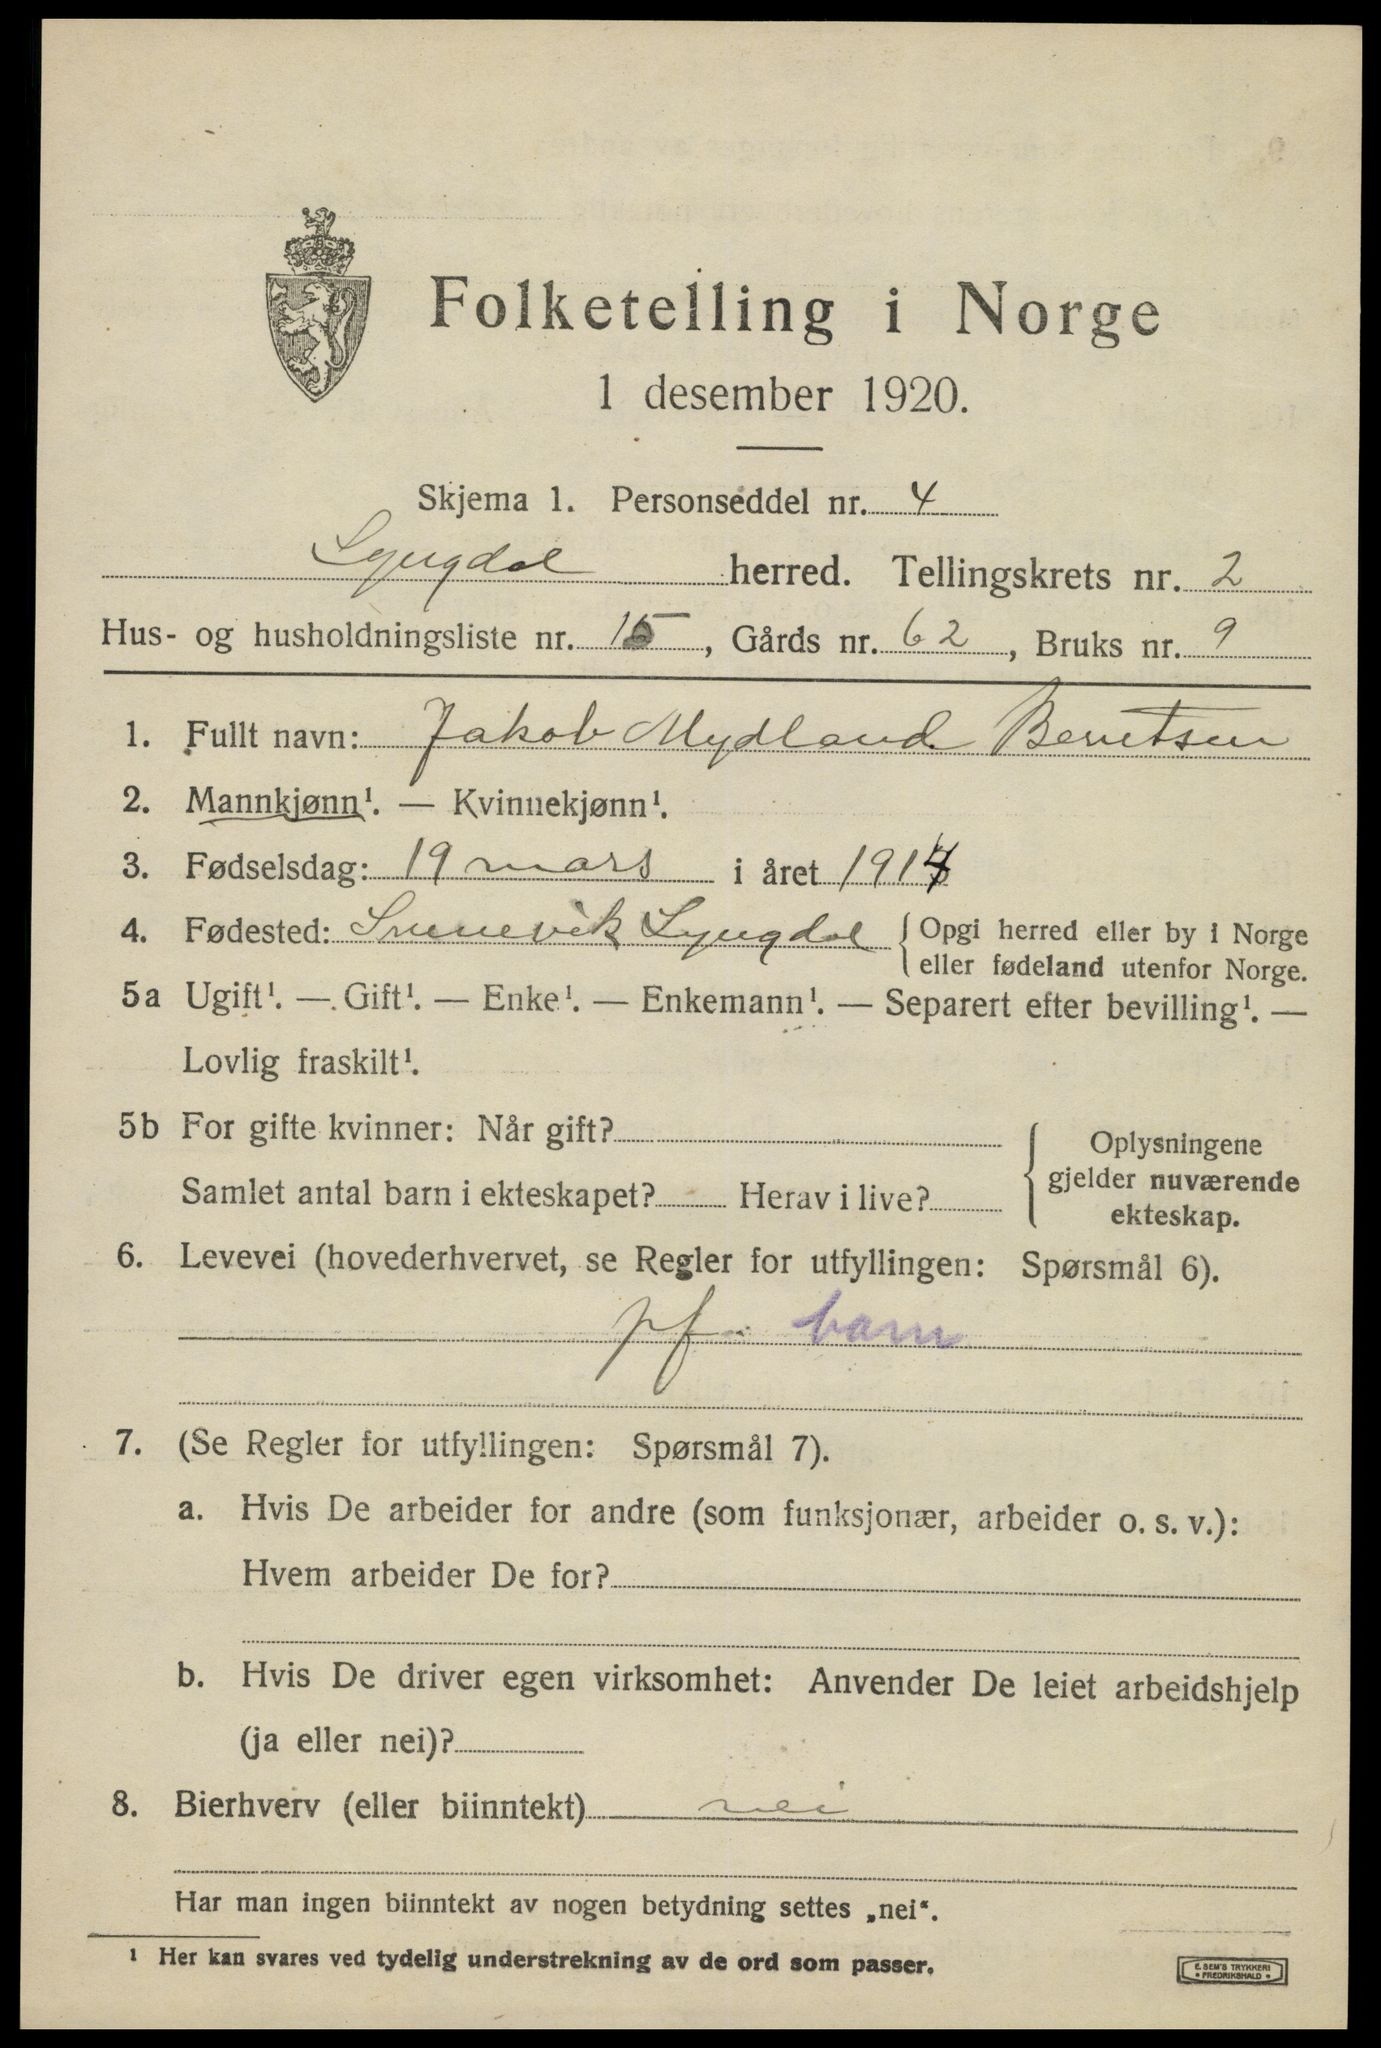 Folketelling i Norge
1 desember 1920.
Skjema 1. Personseddel nr. 4
Lyngdal herred. Tellingskrets nr. 2
Hus- og husholdningsliste nr. 15, Gårds nr. 62, Bruks nr. 9
1. Fullt navn: Jakob Mydland Berntsen
2. Mannkjønn¹. — Kvinnekjønn¹.
3. Fødselsdag: 19 mars i året 191
4. Fødested: Lyngdal { Opgi herred eller by i Norge
eller fødeland utenfor Norge.
5a Ugift¹. — Gift¹. — Enke¹. — Enkemann¹. — Separert efter bevilling¹. —
Lovlig fraskilt¹.
5b For gifte kvinner: Når gift?
Samlet antal barn i ekteskapet? Herav i live?
{ Oplysningene
gjelder nuværende
ekteskap.
6. Levevei (hovederhvervet, se Regler for utfyllingen: Spørsmål 6).
pf barn
7. (Se Regler for utfyllingen: Spørsmål 7).
a. Hvis De arbeider for andre (som funksjonær, arbeider o. s. v.):
Hvem arbeider De for?
b. Hvis De driver egen virksomhet: Anvender De leiet arbeidshjelp
(ja eller nei)?
8. Bierhverv (eller biinntekt) nei
Har man ingen biinntekt av nogen betydning settes „nei“.
¹ Her kan svares ved tydelig understrekning av de ord som passer.
E. SEM'S TRYKKERI
• FREDRIKSHALD •